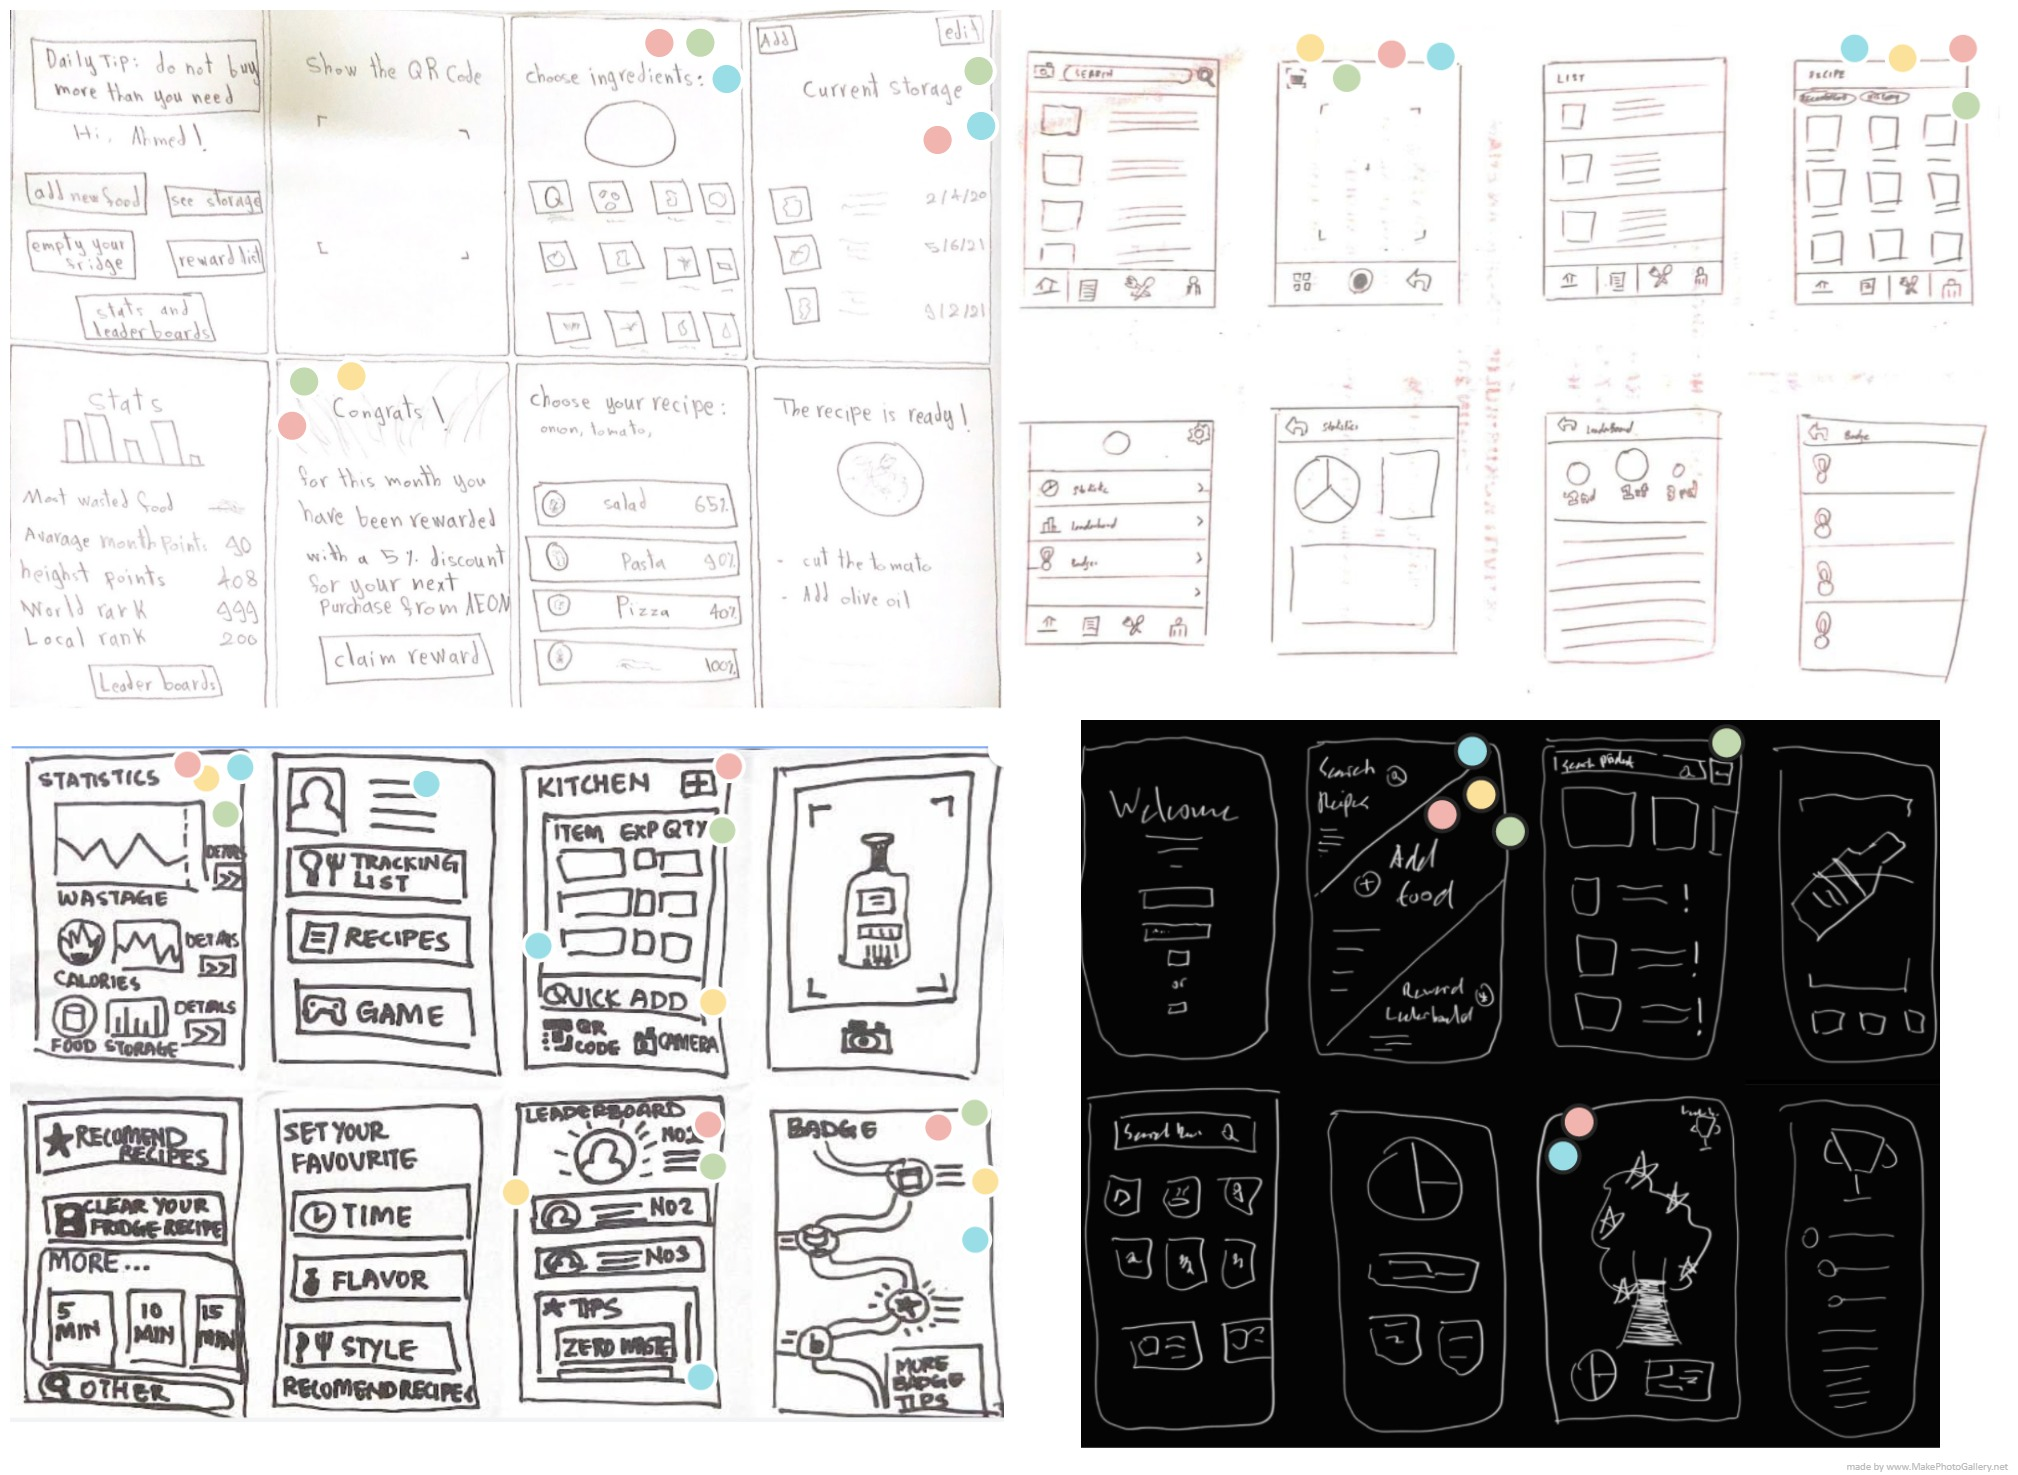 Daily Tip: do not buy
more than you need
Hi, Ahmed!
add new food
see storage
empty your
fridge
reward list
stats and
leaderboards
Show the QR Code
choose ingredients:
Q
Add
edit
Current Storage
2/4/20
5/6/21
9/2/21
Stats
Most wasted food
Avarage month points 90
heighst points 408
World rank 999
Local rank 200
Leader boards
Congrats!
for this month you
have been rewarded
with a 5% discount
for your next
Purchase from AEON
claim reward
choose your recipe:
onion, tomato,
salad 65%
Pasta 90%
Pizza 40%
100%
The recipe is ready!
- cut the tomato
- Add olive oil
SEARCH
LIST
RECIPE
Statistic
Leaderboard
Badges
Statistics
Leaderboard
Badge
STATISTICS
DETAILS
WASTAGE
DETAILS
CALORIES
DETAILS
FOOD STORAGE
TRACKING
LIST
RECIPES
GAME
KITCHEN
ITEM EXP QTY
QUICK ADD
QR
CODE
CAMERA
RECOMEND
RECIPES
CLEAR YOUR
FRIDGE RECIPE
MORE...
5
MIN
10
MIN
15
MIN
OTHER
SET YOUR
FAVOURITE
TIME
FLAVOR
STYLE
RECOMEND RECIPES
LEADERBOARD
NO1
NO2
NO3
TIPS
ZERO WASTE
BADGE
MORE
BADGE
TIPS
Welcome
or
Search
Recipes
Add
food
Reward
Search product
made by www.MakePhotoGallery.net